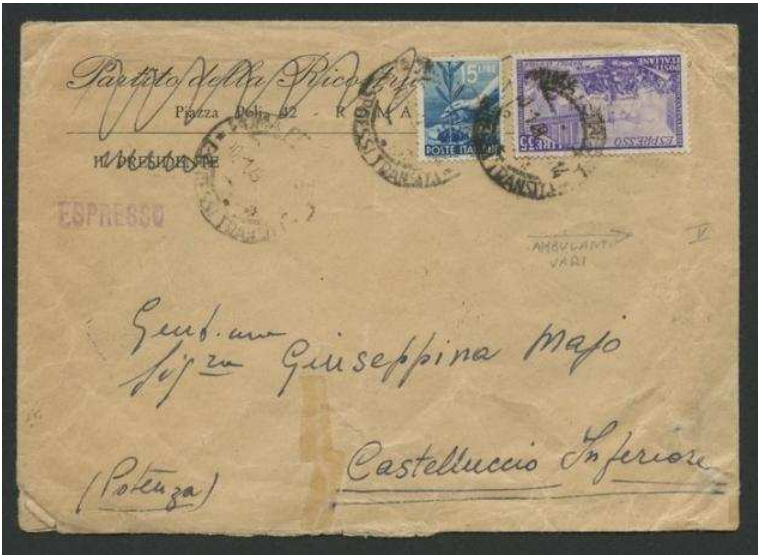 Partito della
Piazza Polia 42 - ROMA
IL PRESIDENTE
ESPRESSO
15 LIRE
POSTE ITALIANE
POSTE ITALIANE
ESPRESSO
LIRE 35
ESPRESSI TRANSITI
AMBULANTI
VARI
V
Gent.ma
Sig.ra Giuseppina Majo
Castelluccio Inferiore
(Potenza)